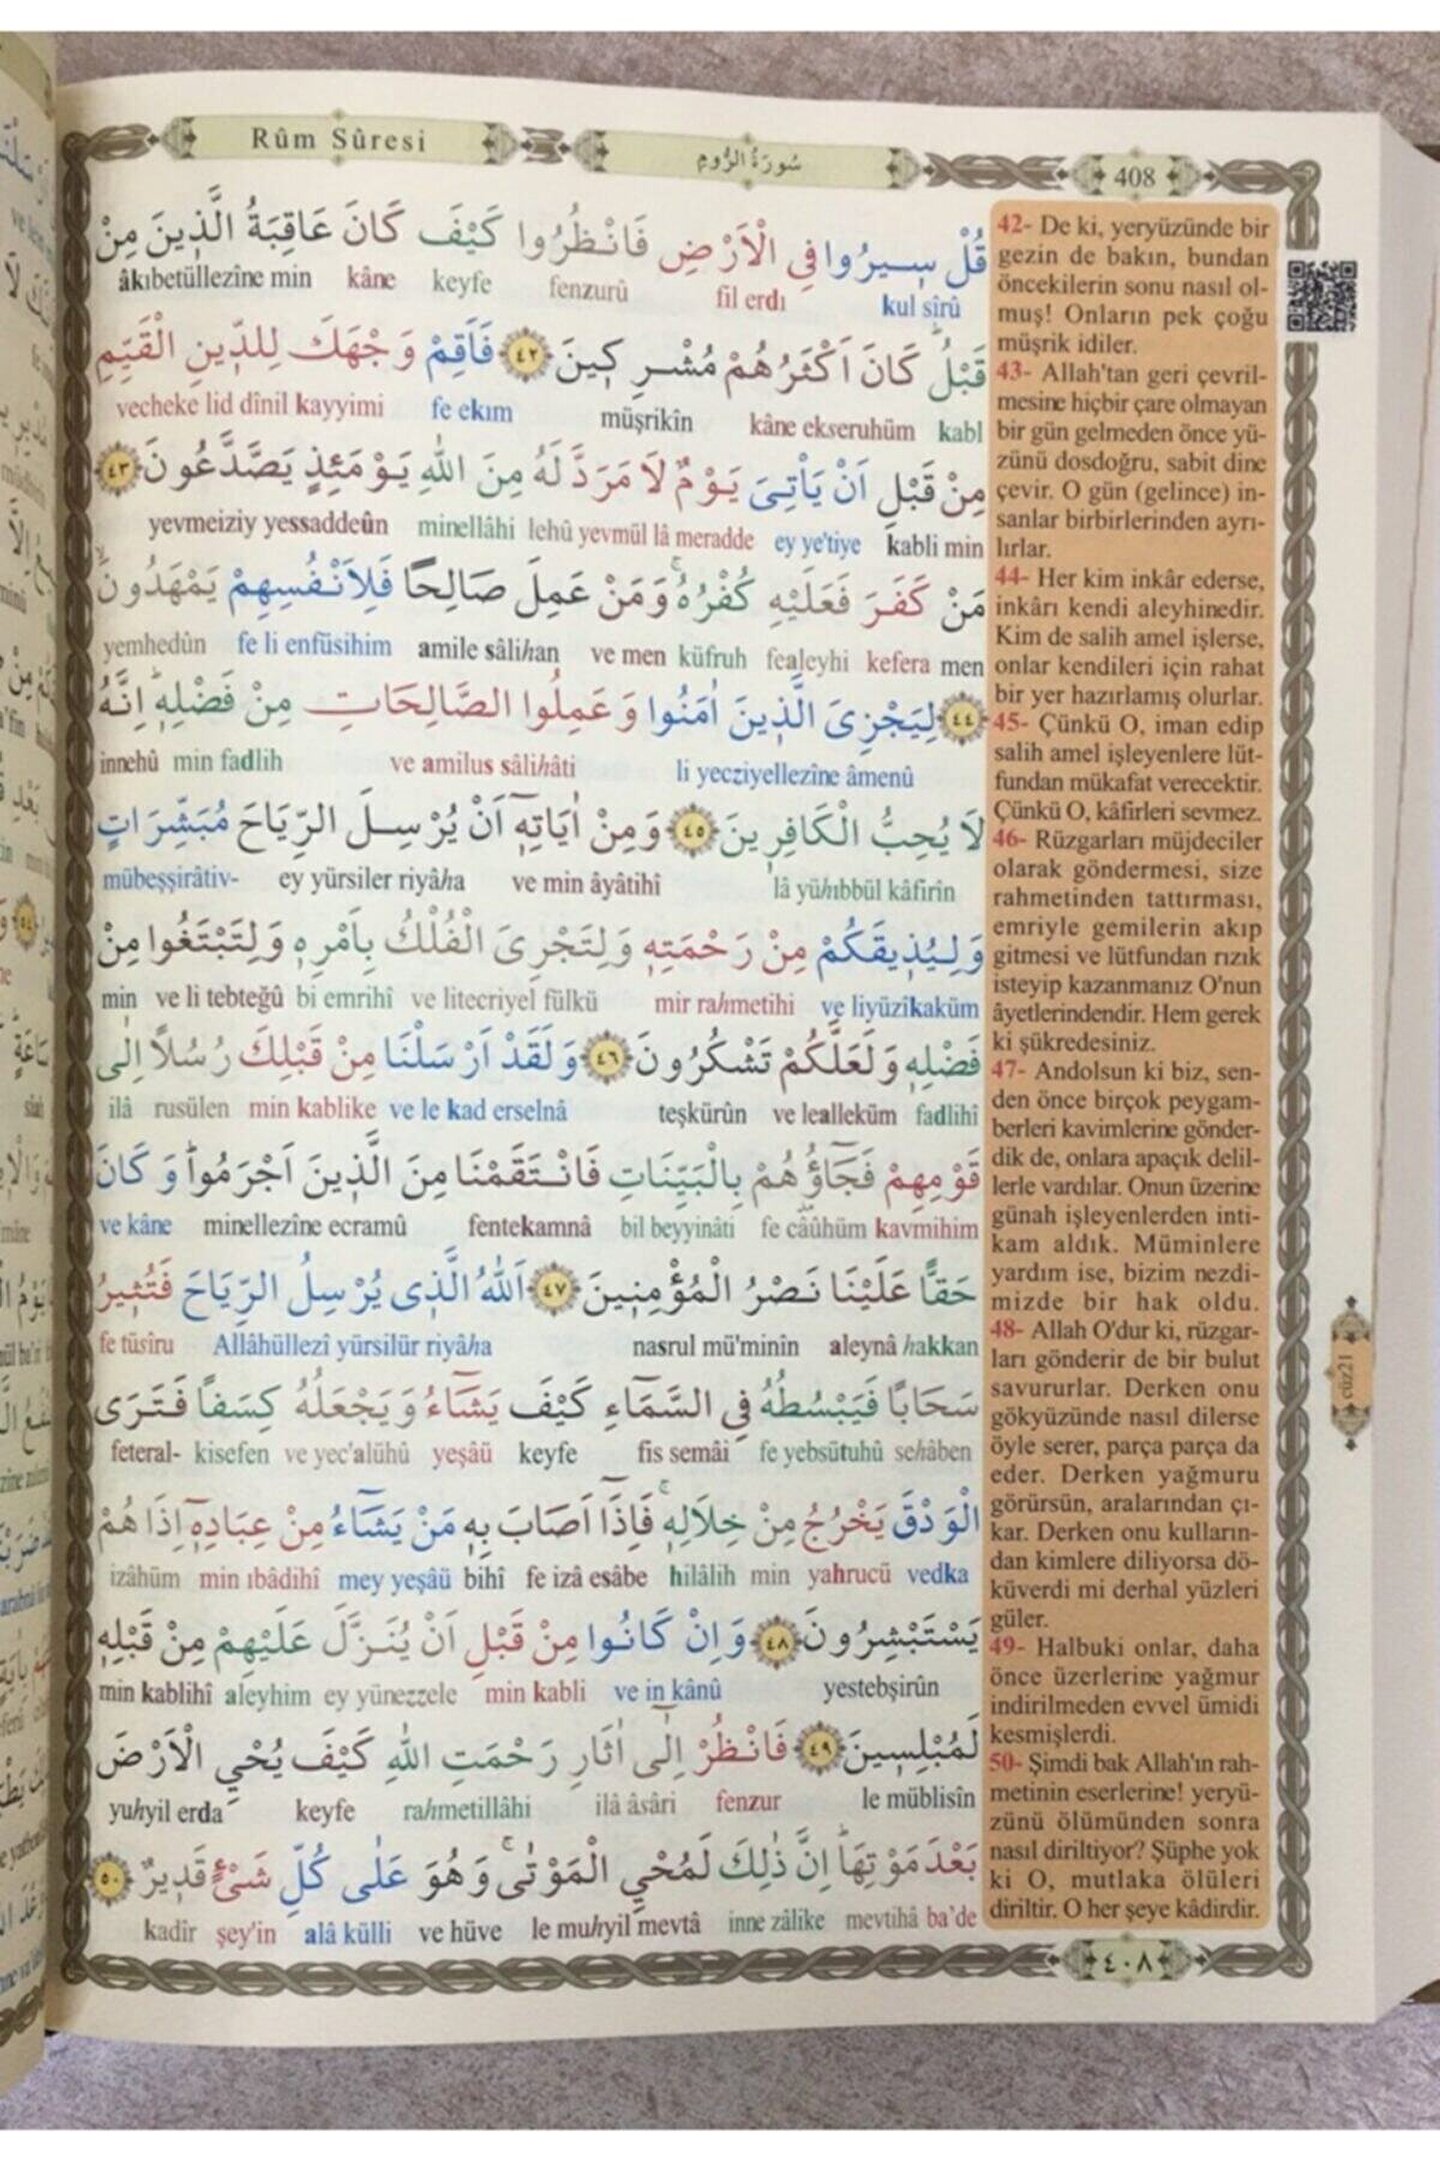 Rûm Sûresi
سُورَةُ الرُّومِ
408
قُلْ سٖيرُوا فِي الْاَرْضِ فَانْظُرُوا كَيْفَ كَانَ عَاقِبَةُ الَّذٖينَ مِنْ
âkıbetüllezîne min kâne keyfe fenzurû fil erdı kul sîrû
قَبْلُؕ كَانَ اَكْثَرُهُمْ مُشْرِكٖينَ ﴿٤٢﴾ فَاَقِمْ وَجْهَكَ لِلدّٖينِ الْقَيِّمِ
vecheke lid dînil kayyimi fe ekım müşrikîn kâne ekseruhüm kabl
مِنْ قَبْلِ اَنْ يَاْتِيَ يَوْمٌ لَا مَرَدَّ لَهُ مِنَ اللّٰهِ يَوْمَئِذٍ يَصَّدَّعُونَ ﴿٤٣﴾
yevmeiziy yessaddeûn minellâhi lehû yevmül lâ meradde ey ye'tiye kabli min
مَنْ كَفَرَ فَعَلَيْهِ كُفْرُهُۚ وَمَنْ عَمِلَ صَالِحًا فَلِاَنْفُسِهِمْ يَمْهَدُونَۙ
yemhedûn fe li enfüsihim amile sâlihan ve men küfruh fealeyhi kefera men
﴿٤٤﴾ لِيَجْزِيَ الَّذٖينَ اٰمَنُوا وَعَمِلُوا الصَّالِحَاتِ مِنْ فَضْلِهٖؕ اِنَّهُ
innehû min fadlih ve amilus sâlihâti li yecziyellezîne âmenû
لَا يُحِبُّ الْكَافِرٖينَ ﴿٤٥﴾ وَمِنْ اٰيَاتِهٖٓ اَنْ يُرْسِلَ الرِّيَاحَ مُبَشِّرَاتٍ
mübeşşirâtiv- ey yürsiler riyâha ve min âyâtihî lâ yühıbbül kâfirîn
وَلِيُذٖيقَكُمْ مِنْ رَحْمَتِهٖ وَلِتَجْرِيَ الْفُلْكُ بِاَمْرِهٖ وَلِتَبْتَغُوا مِنْ
min ve li tebteğû bi emrihî ve litecriyel fülkü mir rahmetihi ve liyüzîkaküm
فَضْلِهٖ وَلَعَلَّكُمْ تَشْكُرُونَ ﴿٤٦﴾ وَلَقَدْ اَرْسَلْنَا مِنْ قَبْلِكَ رُسُلًا اِلٰى
ilâ rusülen min kablike ve le kad erselnâ teşkürûn ve lealleküm fadlihî
قَوْمِهِمْ فَجَٓاؤُهُمْ بِالْبَيِّنَاتِ فَانْتَقَمْنَا مِنَ الَّذٖينَ اَجْرَمُواؕ وَكَانَ
ve kâne minellezîne ecramû fentekamnâ bil beyyinâti fe câûhüm kavmihim
حَقًّا عَلَيْنَا نَصْرُ الْمُؤْمِنٖينَ ﴿٤٧﴾ اَللّٰهُ الَّذٖى يُرْسِلُ الرِّيَاحَ فَتُثٖيرُ
fe tüsîru Allâhüllezî yürsilür riyâha nasrul mü'minîn aleynâ hakkan
سَحَابًا فَيَبْسُطُهُ فِي السَّمَٓاءِ كَيْفَ يَشَٓاءُ وَيَجْعَلُهُ كِسَفًا فَتَرَى
feteral- kisefen ve yec'alühû yeşâü keyfe fis semâi fe yebsütuhû sehâben
الْوَدْقَ يَخْرُجُ مِنْ خِلَالِهٖۚ فَاِذَٓا اَصَابَ بِهٖ مَنْ يَشَٓاءُ مِنْ عِبَادِهٖٓ اِذَا هُمْ
izâhüm min ıbâdihî mey yeşâü bihî fe izâ esâbe hilâlih min yahrucü vedka
يَسْتَبْشِرُونَ ﴿٤٨﴾ وَاِنْ كَانُوا مِنْ قَبْلِ اَنْ يُنَزَّلَ عَلَيْهِمْ مِنْ قَبْلِهٖ
min kablihî aleyhim ey yünezzele min kabli ve in kânû yestebşirûn
لَمُبْلِسٖينَ ﴿٤٩﴾ فَانْظُرْ اِلٰٓى اٰثَارِ رَحْمَتِ اللّٰهِ كَيْفَ يُحْيِي الْاَرْضَ
yuhyil erda keyfe rahmetillâhi ilâ âsâri fenzur le müblisîn
بَعْدَ مَوْتِهَاؕ اِنَّ ذٰلِكَ لَمُحْيِي الْمَوْتٰىۚ وَهُوَ عَلٰى كُلِّ شَيْءٍ قَدٖيرٌ ﴿٥٠﴾
kadîr şey'in alâ külli ve hüve le muhyil mevtâ inne zâlike mevtihâ ba'de
42- De ki, yeryüzünde bir
gezin de bakın, bundan
öncekilerin sonu nasıl ol-
muş! Onların pek çoğu
müşrik idiler.
43- Allah'tan geri çevril-
mesine hiçbir çare olmayan
bir gün gelmeden önce yü-
zünü dosdoğru, sabit dine
çevir. O gün (gelince) in-
sanlar birbirlerinden ayrı-
lırlar.
44- Her kim inkâr ederse,
inkârı kendi aleyhinedir.
Kim de salih amel işlerse,
onlar kendileri için rahat
bir yer hazırlamış olurlar.
45- Çünkü O, iman edip
salih amel işleyenlere lüt-
fundan mükafat verecektir.
Çünkü O, kâfirleri sevmez.
46- Rüzgarları müjdeciler
olarak göndermesi, size
rahmetinden tattırması,
emriyle gemilerin akıp
gitmesi ve lütfundan rızık
isteyip kazanmanız O'nun
âyetlerindendir. Hem gerek
ki şükredesiniz.
47- Andolsun ki biz, sen-
den önce birçok peygam-
berleri kavimlerine gönder-
dik de, onlara apaçık delil-
lerle vardılar. Onun üzerine
günah işleyenlerden inti-
kam aldık. Müminlere
yardım ise, bizim nezdi-
mizde bir hak oldu.
48- Allah O'dur ki, rüzgar-
ları gönderir de bir bulut
savururlar. Derken onu
gökyüzünde nasıl dilerse
öyle serer, parça parça da
eder. Derken yağmuru
görürsün, aralarından çı-
kar. Derken onu kulların-
dan kimlere diliyorsa dö-
küverdi mi derhal yüzleri
güler.
49- Halbuki onlar, daha
önce üzerlerine yağmur
indirilmeden evvel ümidi
kesmişlerdi.
50- Şimdi bak Allah'ın rah-
metinin eserlerine! yeryü-
zünü ölümünden sonra
nasıl diriltiyor? Şüphe yok
ki O, mutlaka ölüleri
diriltir. O her şeye kâdirdir.
cüz21
٤٠٨